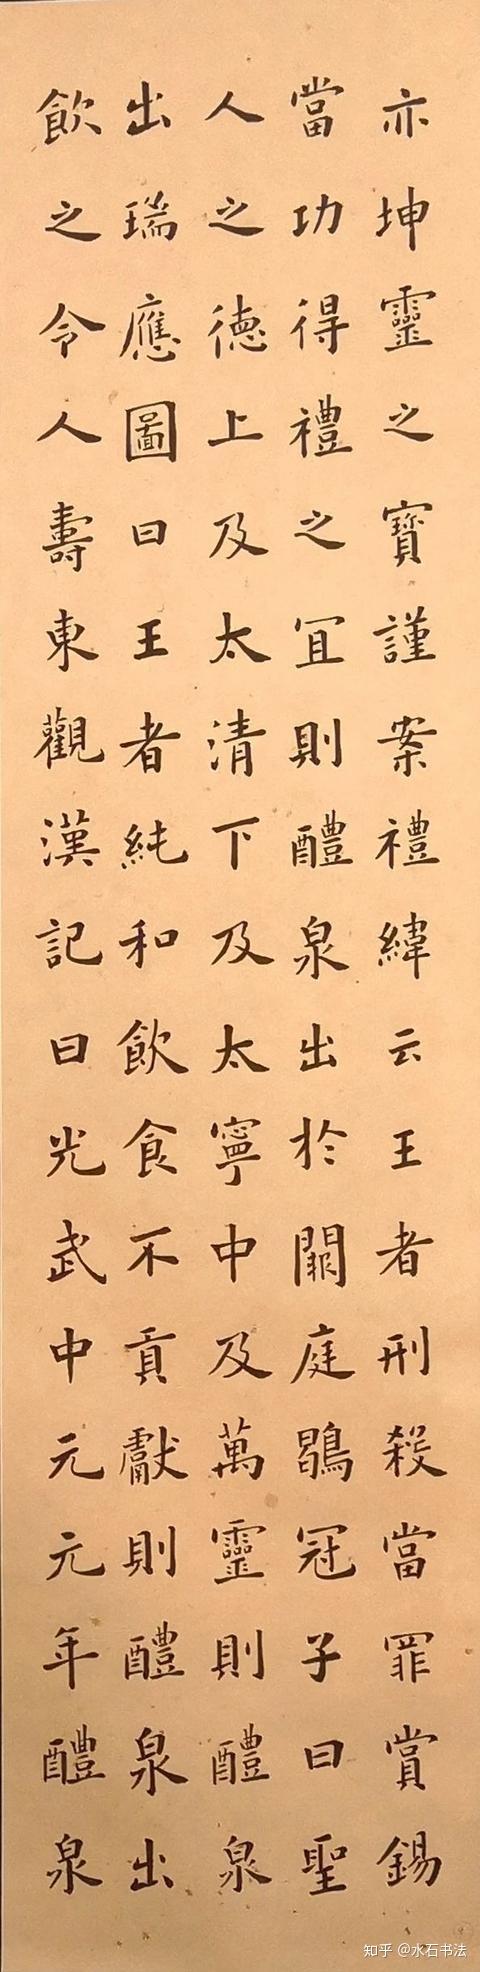 亦坤靈之寶謹案禮緯云王者刑殺當罪賞錫
當功得禮之宜則醴泉出於闕庭鶡冠子曰聖
人之德上及太清下及太寧中及萬靈則醴泉
出瑞應圖曰王者純和飲食不貢獻則醴泉出
飲之令人壽東觀漢記曰光武中元元年醴泉
知乎 @水石书法